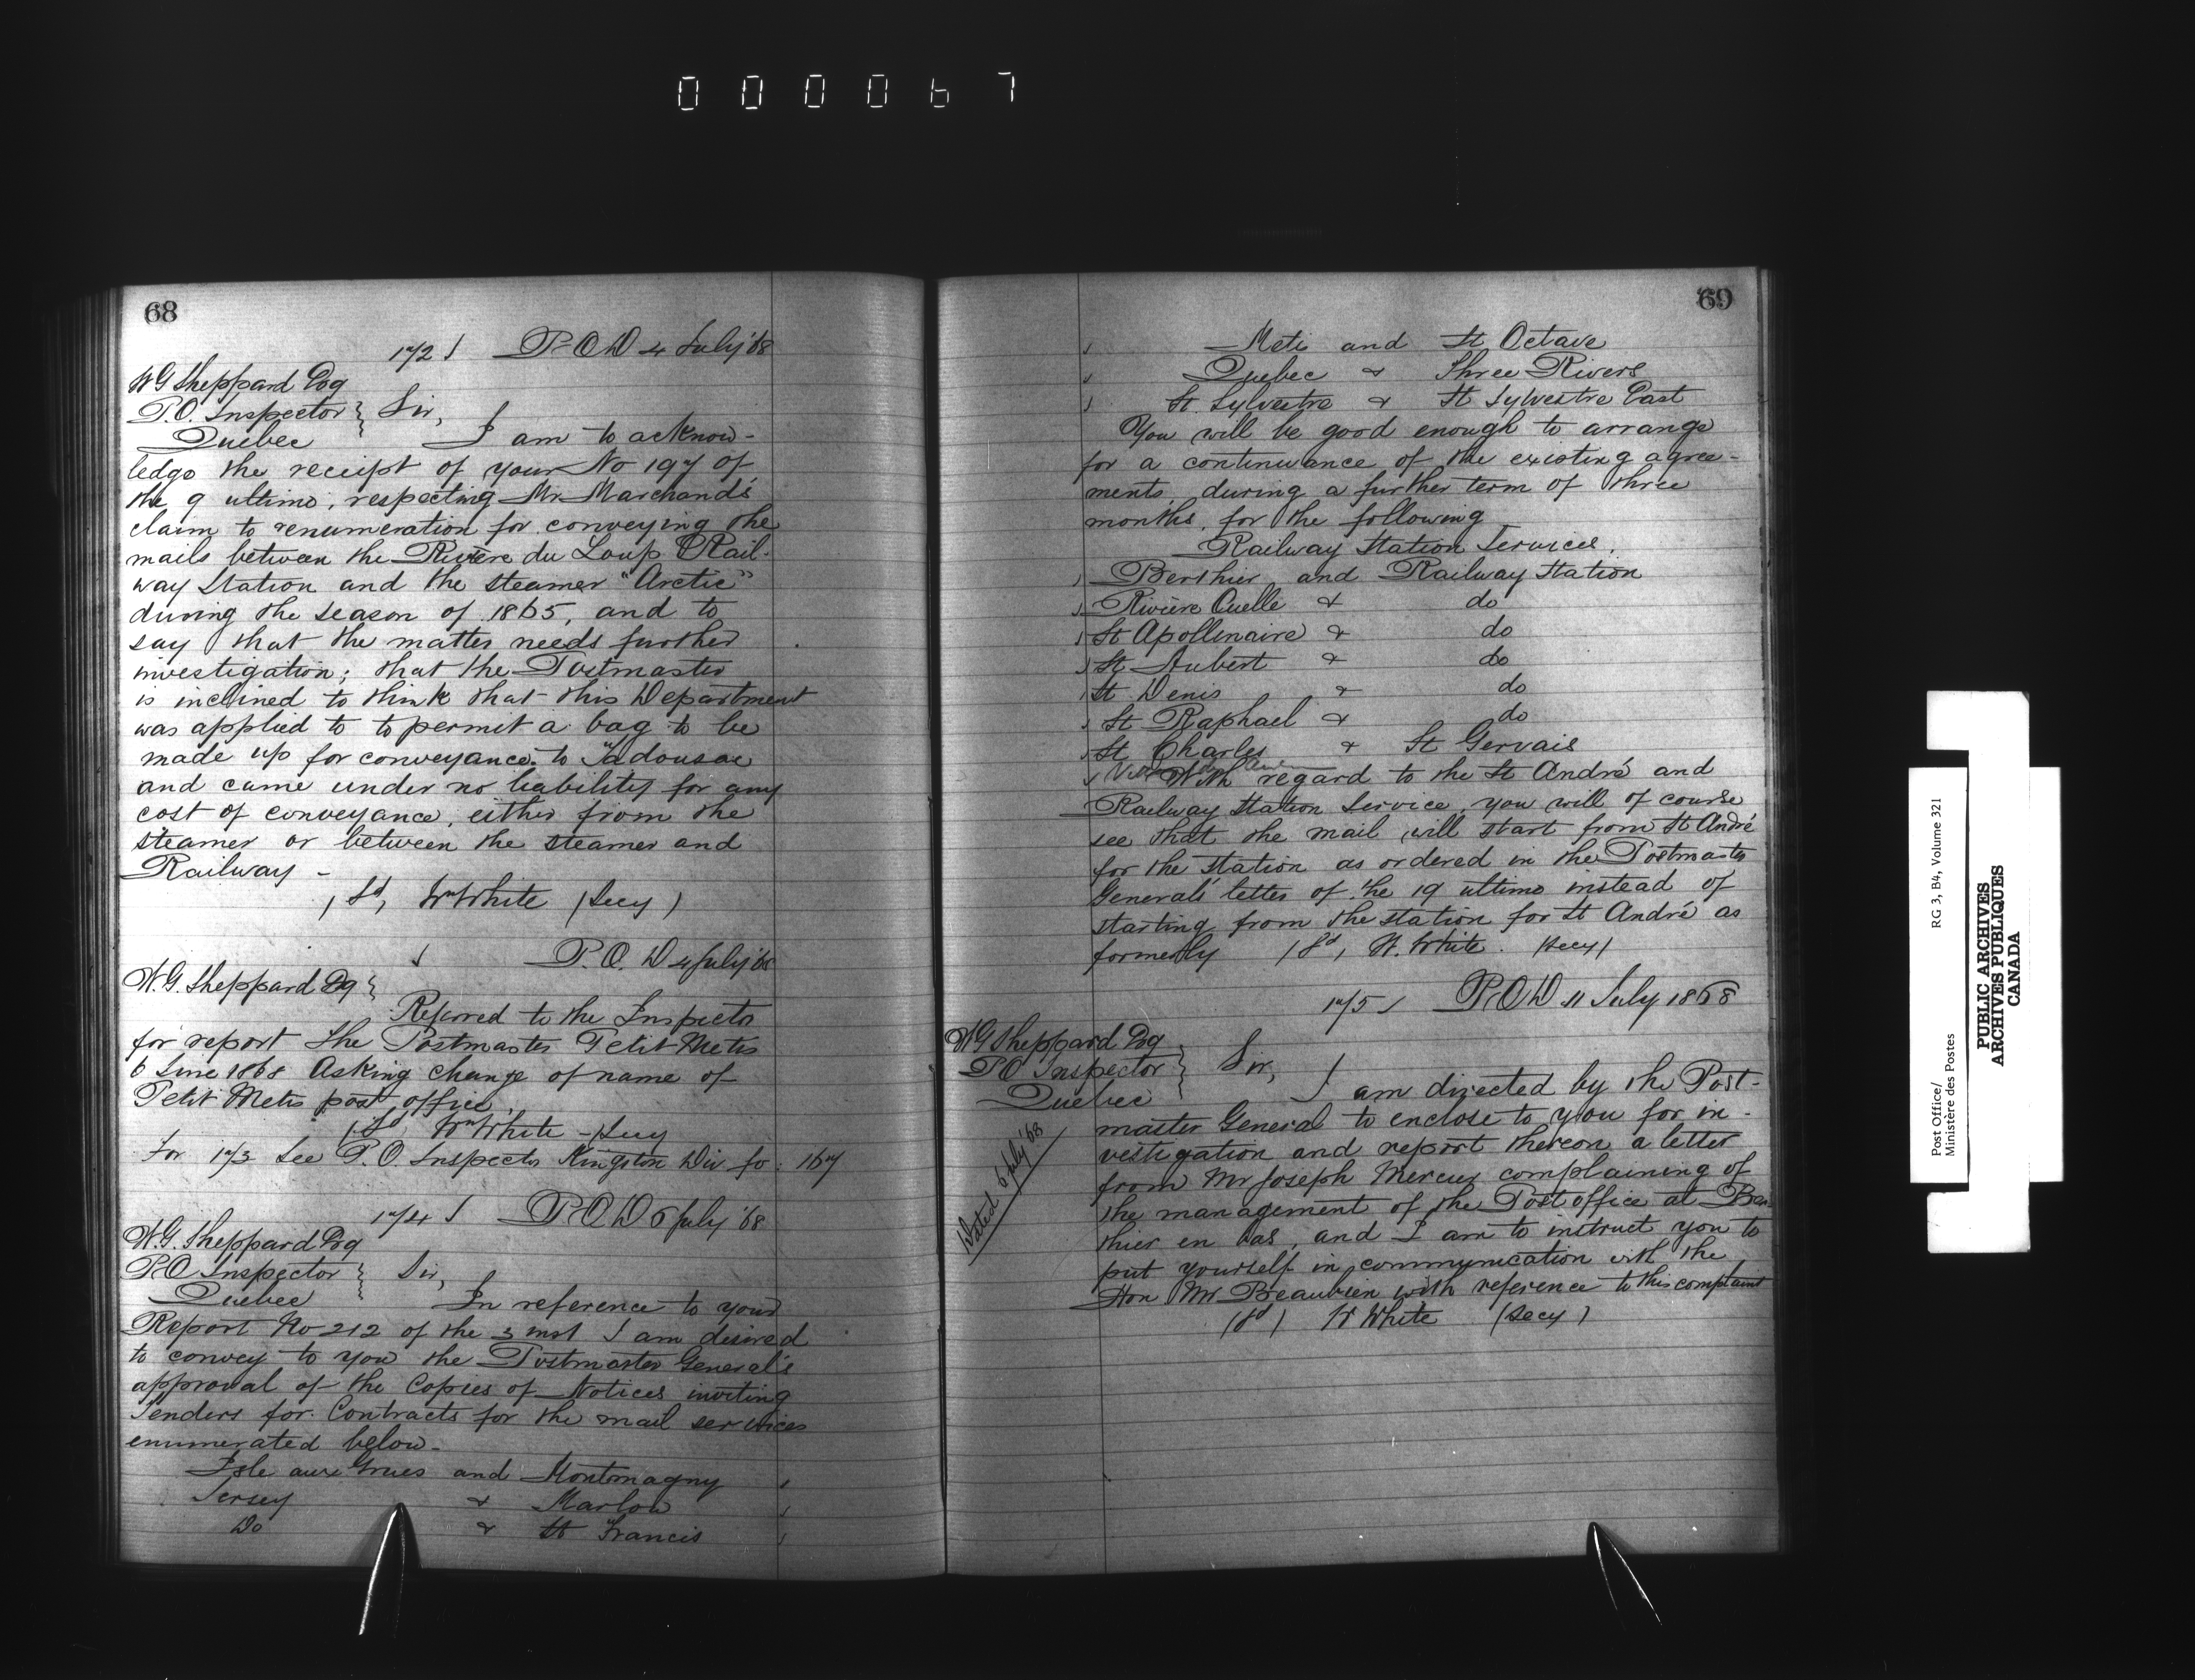 000067
68
172 P.O.D 4 July '68
W G Sheppard Esq
P.O. Inspector } Sir,
Quebec I am to acknow-
ledge the receipt of your No 197 of
the 9 ultimo, respecting Mr Marchand's
claim to renumeration for conveying the
mails between the Rivière du Loup Rail-
way Station and the steamer "Arctic"
during the season of 1865, and to
say that the matter needs further
investigation; that the Postmaster
is inclined to think that this Department
was applied to to permit a bag to be
made up for conveyance to Tadousac
and came under no liability for any
cost of conveyance, either from the
steamer or between the steamer and
Railway -
(Sd, Wm White (Secy)
P.O. D 4 July '68
W.G. Sheppard Esq }
Referred to the Inspector
for report the Postmaster Petit Metis
6 June 1868 Asking change of name of
Petit Metis post office.
(Sd Wm White - Secy
For 173 See P.O. Inspector Kingston Div fo: 167
174 P.O.D 6 July '68
W.G. Sheppard Esq
P.O Inspector } Sir,
Quebec In reference to your
Report No 212 of the 3 inst I am desired
to convey to you the Postmaster General's
approval of the Copies of Notices inviting
Tenders for Contracts for the mail services
enumerated below -
Isle aux Grues and Montmagny
Jersey & Marlow
Do & St Francis
69
Metis and St Octave
Quebec & Three Rivers
St. Sylvestre & St Sylvestre East
You will be good enough to arrange
for a continuance of the existing agree-
ments, during a further term of three
months, for the following
Railway Station Services.
Berthier and Railway Station
Rivière Ouelle & do
St Apollinaire & do
St Aubert & do
St Denis & do
St Raphael & do
St Charles & St Gervais
With regard to the St André and
Railway Station Service, you will of course
see that the mail will start from St André
for the station as ordered in the Postmaster
General's letter of the 19 ultimo instead of
starting from the station for St André as
formerly (Sd, W. White. (Secy)
175 P.O.D 11 July 1868
W G Sheppard Esq
P.O Inspector } Sir,
Quebec I am directed by the Post-
master General to enclose to you for in-
vestigation and report thereon a letter
from Mr Joseph Mercier complaining of
the management of the Post office at Ber-
thier en bas, and I am to instruct you to
put yourself in communication with the
Hon Mr Beaubien with reference to this complaint
(Sd) W White (Secy)
Dated 6 July '68
Post Office/ RG 3, B4, Volume 321
Ministère des Postes
PUBLIC ARCHIVES
ARCHIVES PUBLIQUES
CANADA